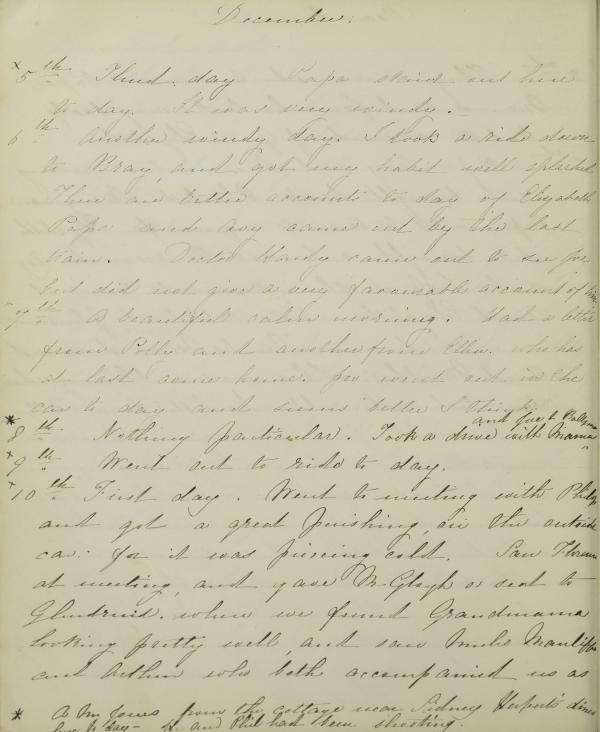 December.
x 5th Third day. Papa staid out here
to day. It was very windy.
6th Another windy day. I took a ride down
to Bray, and got my habit well splashed.
There are better accounts to day of Elizabeth
Papa and Avy came out by the last
train. Doctor Hardy came out to see Joe
but did not give a very favourable account of him
7th A beautiful calm morning. Had a letter
from Polly and another from Ellen. who has
at last come home. Joe went out in the
car to day and seems better I think.
and Joe to
* 8th Nothing particular. Took a drive with Mama
x 9th Went out to ride to day.
x 10th First day. Went to meeting with Philip
and got a great punishing on the outside
car: for it was piercing cold. Saw
at meeting, and gave a seat to
Glendruid. where we found Grandmama
looking pretty well, and saw Uncle
and Arthur who both accompanied us as
* A Mr Jones from the cottage near Sidney Herbert's dined
here to day - he and Phil had been shooting.